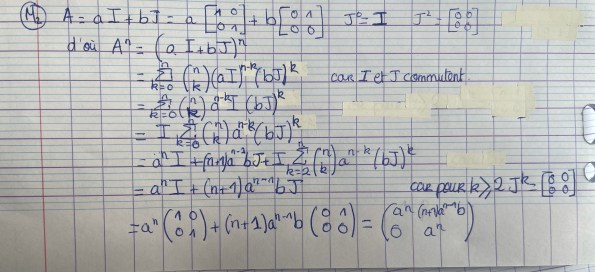 (M2) A = aI + bJ = a [1 0; 0 1] + b [0 1; 0 0] J⁰ = I J² = [0 0; 0 0]
d'où Aⁿ = (aI + bJ)ⁿ
= Σ_{k=0}^{n} (n k) (aI)^{n-k} (bJ)^k car I et J commutent.
= Σ_{k=0}^{n} (n k) a^{n-k} I (bJ)^k
= I Σ_{k=0}^{n} (n k) a^{n-k} (bJ)^k
= aⁿI + (n+1)a^{n-1}bJ + I Σ_{k=2}^{n} (n k) a^{n-k} (bJ)^k
= aⁿI + (n+1)a^{n-1}bJ car pour k ⩾ 2 J^k = [0 0; 0 0]
= aⁿ (1 0; 0 1) + (n+1)a^{n-1}b (0 1; 0 0) = (aⁿ (n+1)a^{n-1}b; 0 aⁿ)